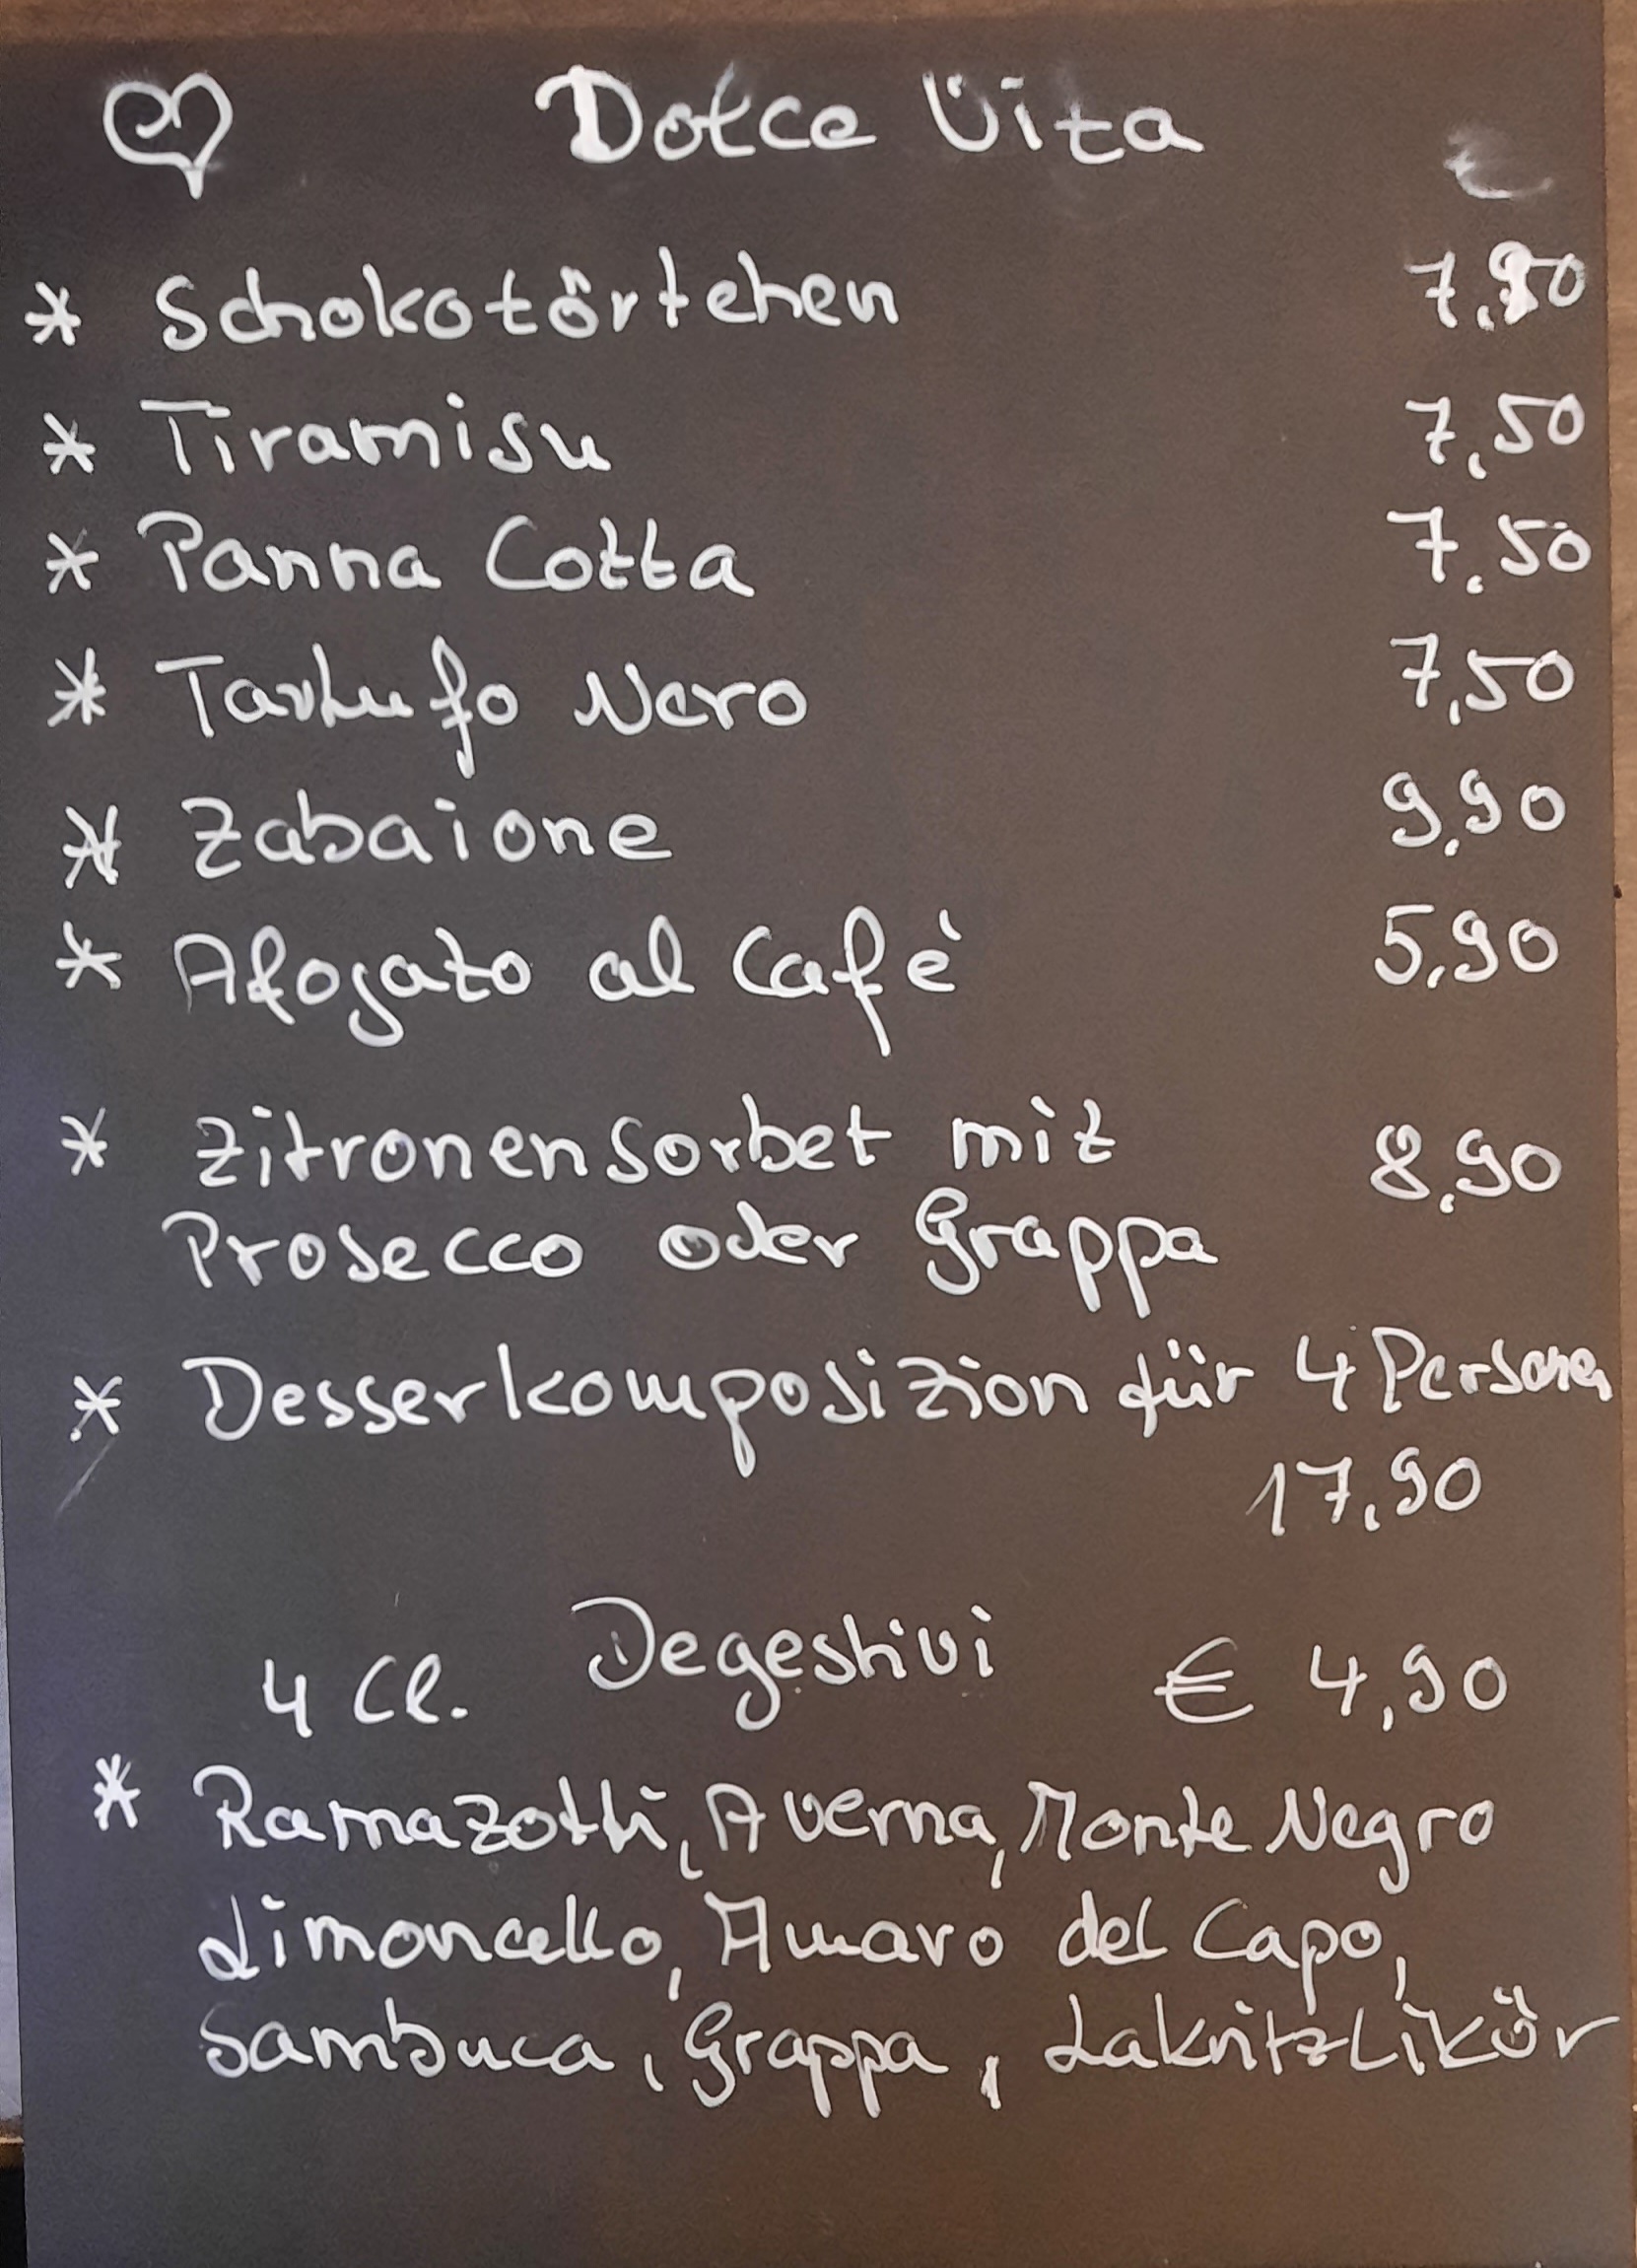 Dolce Vita €
* Schokotörtchen 7,90
* Tiramisu 7,50
* Panna Cotta 7,50
* Tartufo Nero 7,50
* Zabaione 9,90
* Afogato al Cafè 5,90
* Zitronensorbet mit 8,90
Prosecco oder Grappa
* Desserkomposizion für 4 Personen
17,90
4 Cl. Degestivi € 4,90
* Ramazotti, Averna, Monte Negro
Limoncello, Amaro del Capo,
Sambuca, Grappa, Lakritzlikör